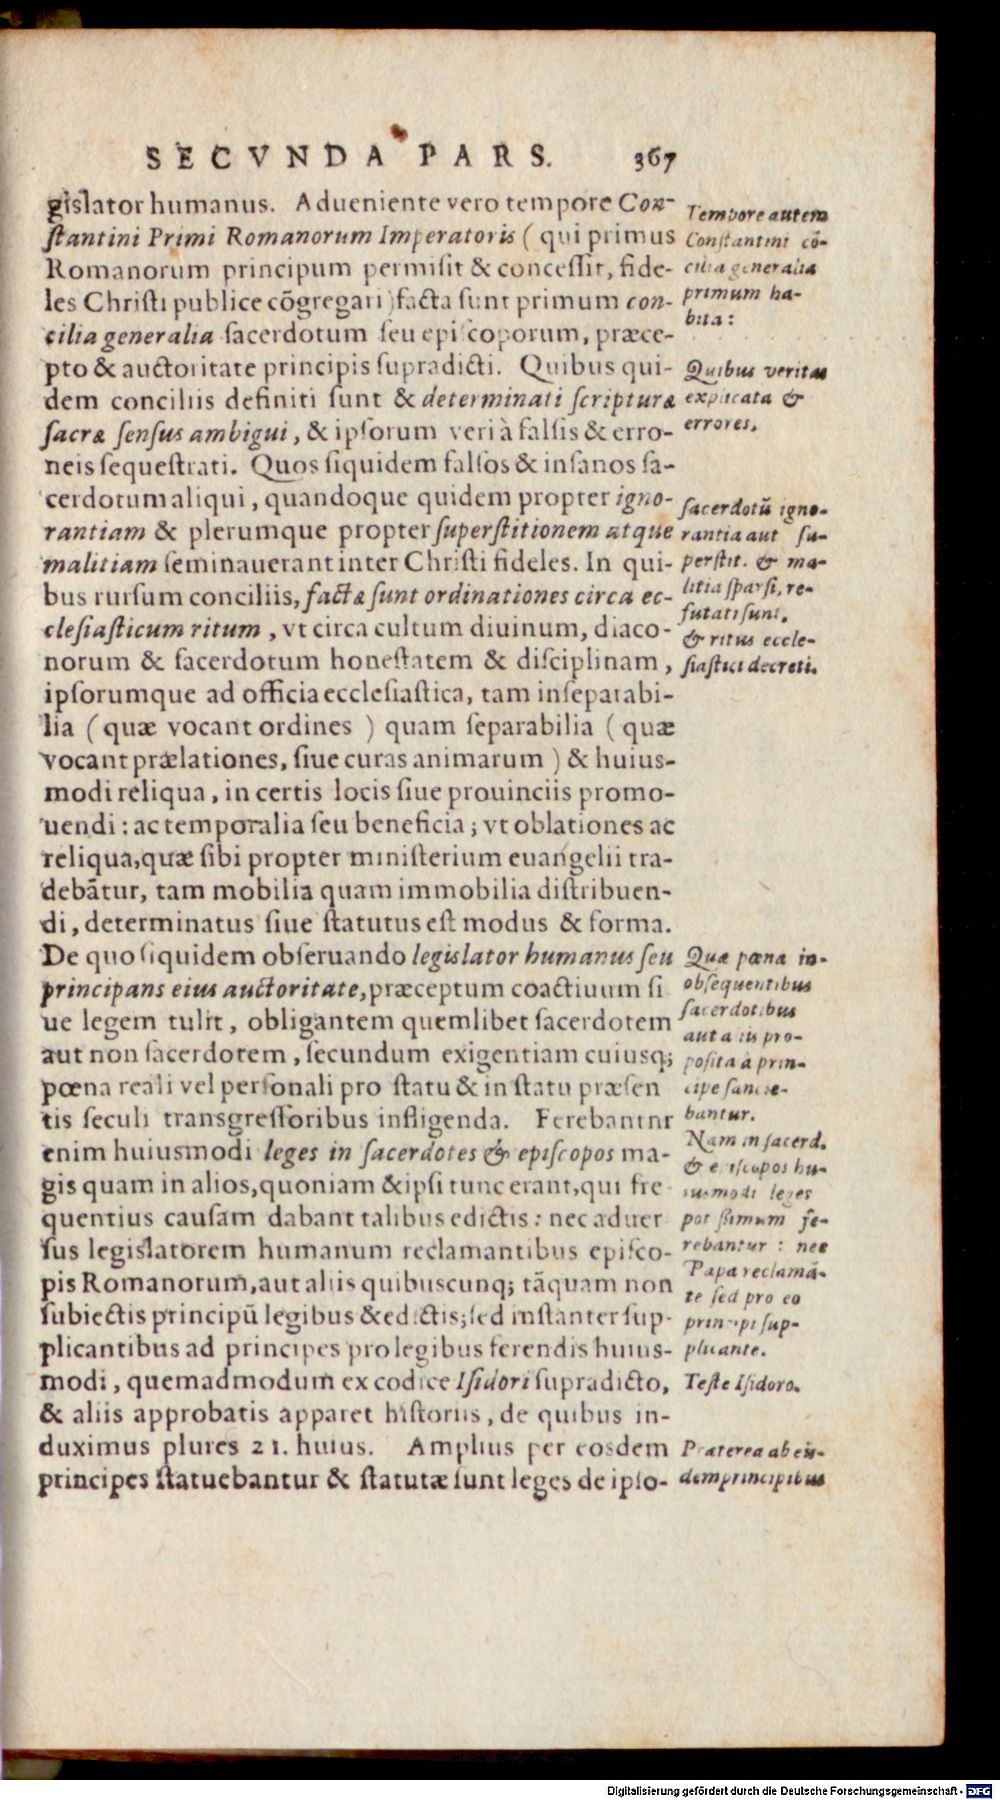 SECVNDA PARS. 367
gislator humanus. Adueniente vero tempore Con-
stantini Primi Romanorum Imperatoris (qui primus
Romanorum principum permisit & concessit, fide-
les Christi publice cõgregari) facta sunt primum con-
cilia generalia sacerdotum seu episcoporum, præce-
pto & auctoritate principis supradicti. Quibus qui-
dem conciliis definiti sunt & determinati scripturæ
sacræ sensus ambigui, & ipsorum veri à falsis & erro-
neis sequestrati. Quos siquidem falsos & insanos sa-
cerdotum aliqui, quandoque quidem propter igno-
rantiam & plerumque propter superstitionem atque
malitiam seminauerant inter Christi fideles. In qui-
bus rursum conciliis, factæ sunt ordinationes circa ec-
clesiasticum ritum, vt circa cultum diuinum, diaco-
norum & sacerdotum honestatem & disciplinam,
ipsorumque ad officia ecclesiastica, tam inseparabi-
lia (quæ vocant ordines) quam separabilia (quæ
vocant prælationes, siue curas animarum) & huius-
modi reliqua, in certis locis siue prouinciis promo-
uendi: ac temporalia seu beneficia; vt oblationes ac
reliqua, quæ sibi propter ministerium euangelii tra-
debãtur, tam mobilia quam immobilia distribuen-
di, determinatus siue statutus est modus & forma.
De quo siquidem obseruando legislator humanus seu
principans eius auctoritate, præceptum coactiuum si
ue legem tulit, obligantem quemlibet sacerdotem
aut non sacerdotem, secundum exigentiam cuiusq;
pœna reali vel personali pro statu & in statu præsen
tis seculi transgressoribus infligenda. Ferebantnr
enim huiusmodi leges in sacerdotes & episcopos ma-
gis quam in alios, quoniam & ipsi tunc erant, qui fre
quentius causam dabant talibus edictis: nec aduer
sus legislatorem humanum reclamantibus episco-
pis Romanorum, aut aliis quibuscunq; tãquam non
subiectis principũ legibus & edictis; sed instanter sup-
plicantibus ad principes pro legibus ferendis huius-
modi, quemadmodum ex codice Isidori supradicto,
& aliis approbatis apparet historiis, de quibus in-
duximus plures 21. huius. Amplius per eosdem
principes statuebantur & statutæ sunt leges de ipso-
Tempore autem
Constantini cõ-
cilia generalia
primum ha-
bita:
Quibus veritas
explicata &
errores,
sacerdotũ igno-
rantia aut su-
perstit. & ma-
litia sparsi, re-
futati sunt,
& ritus eccle-
siastici decreti.
Quæ pœna in-
obsequentibus
sacerdotibus
aut aliis pro-
posita à prin-
cipe sancie-
bantur.
Nam in sacerd.
& episcopos hu-
iusmodi leges
potissimum fe-
rebantur: nec
Papa reclamã-
te sed pro eo
principi sup-
plicante.
Teste Isidoro.
Præterea ab eis-
dem principibus
Digitalisierung gefördert durch die Deutsche Forschungsgemeinschaft - DFG